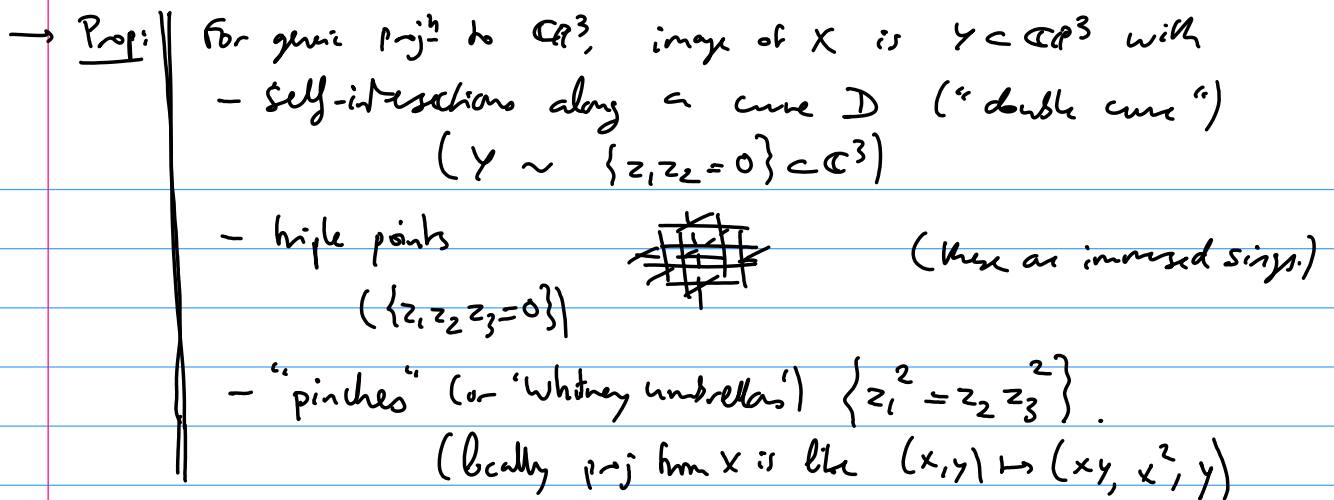 → Prop: For generic projⁿ to ℂℙ³, image of X is Y ⊂ ℂℙ³ with
- self-intersections along a curve D ("double curve")
(Y ~ {z₁z₂ = 0} ⊂ ℂ³)
- triple points (these are immersed sings.)
({z₁z₂z₃=0})
- "pinches" (or 'Whitney umbrellas') {z₁² = z₂ z₃²}.
(locally proj from X is like (x,y) ↦ (xy, x², y)